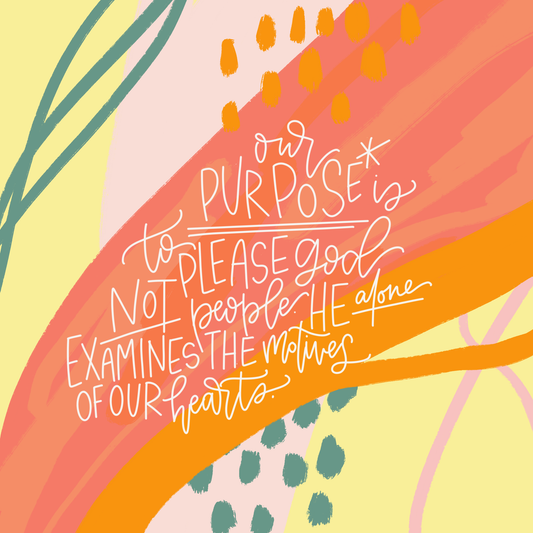 our
PURPOSE* is
to PLEASE god
NOT people. HE alone
EXAMINES THE motives
OF OUR hearts.